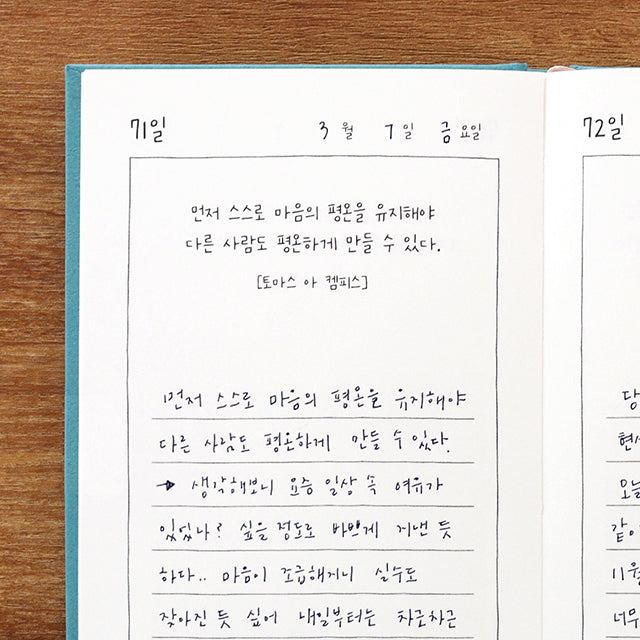 71일 3 월 7 일 금 요일
먼저 스스로 마음의 평온을 유지해야
다른 사람도 평온하게 만들 수 있다.
[토마스 아 켐피스]
먼저 스스로 마음의 평온을 유지해야
다른 사람도 평온하게 만들 수 있다.
→ 생각해보니 요즘 일상 속 여유가
있었나? 싶을 정도로 바쁘게 지낸 듯
하다.. 마음이 조급해지니 실수도
잦아진 듯 싶어 내일부터는 차근차근
72일
당
오늘
같이
11월
너무